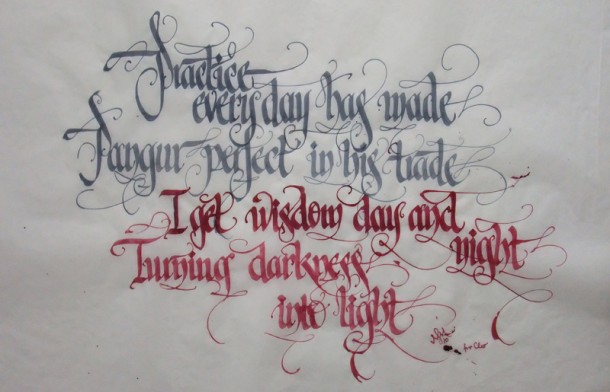 Practice
every day has made
Pangur perfect in his trade
I get wisdom day and
night
Turning darkness
into light
for